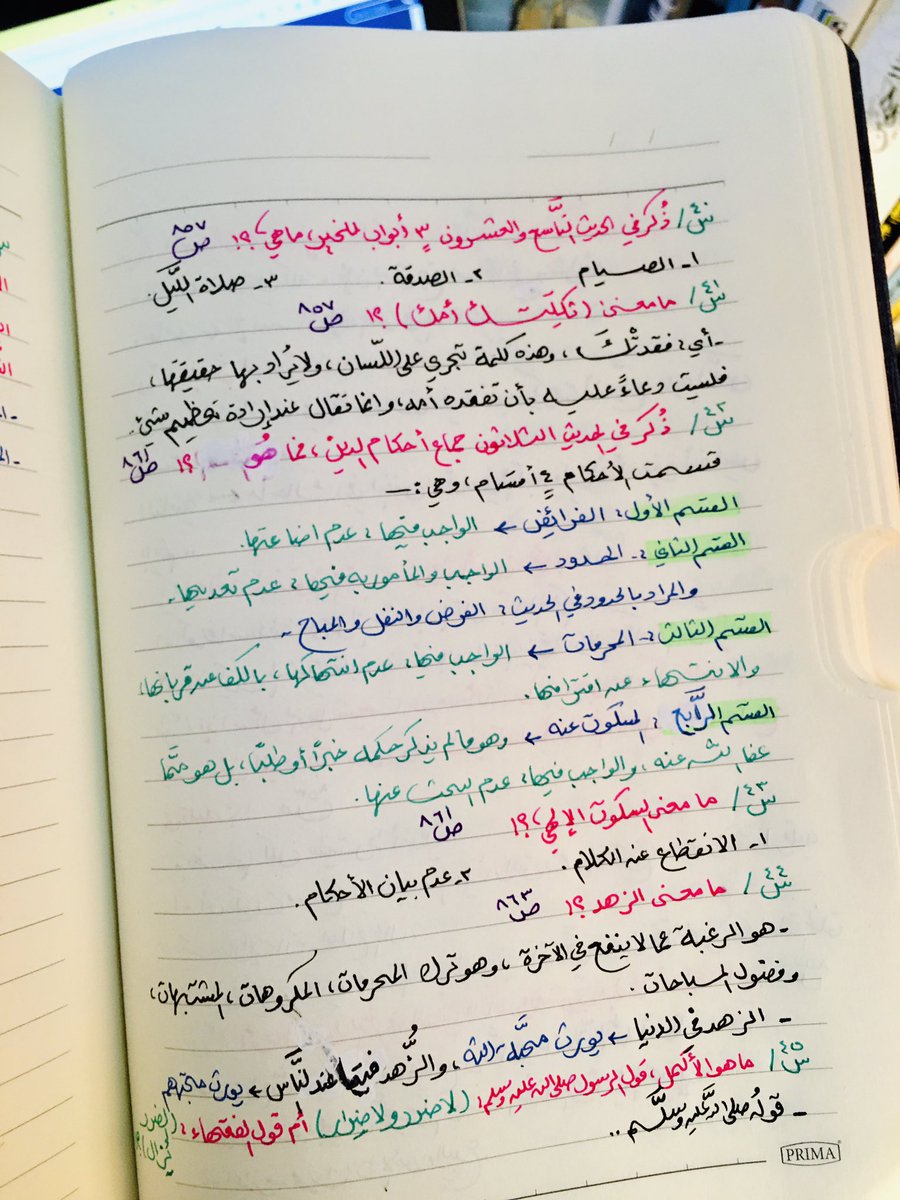 س٤٠/ ذُكر في الحديث التَّاسع والعشرون ٣ أبواب للخير، ما هي؟! ص ٨٥٧
١- الصيام ٢- الصدقة. ٣- صلاة الليَّل.
س٤١/ ما معنى (ثكلتك أمك)؟! ص ٨٥٧
- أي: فقدتْكَ، وهذه كلمة تجري على اللّسان، ولا يُراد بها حقيقتها،
فليست دعاءً عليه بأن تفقده أمه، وانما تقال عند إرادة تعظيم شئ.
س٤٢/ ذُكر في الحديث الثلاثون جماع أحكام الدين، فما هو ؟! ص ٨٦١
قسمت الأحكام ٤ أقسام، وهي:-
القسم الأول: الفرائض ← الواجب فيها: عدم اضاعتها.
القسم الثاني:- الحدود ← الواجب والمأمور به فيها: عدم تعديها.
والمراد بالحدود في الحديث: الفرض والنفل والمباح.
القسم الثالث:- المحرمات ← الواجب فيها: عدم انتهاكها، بالكف عن قربانها،
والانتهاء عن اقترافها.
القسم الرَّابع: المسكوت عنه ← وهو ما لم يذكر حكمه خبرًا أو طلبًا، بل هو ممَّا
عفا الله عنه، والواجب فيها: عدم البحث عنها.
س٤٣/ ما معنى السكوت الإلهي؟! ص ٨٦١
١- الانقطاع عن الكلام. ٢- عدم بيان الأحكام.
س٤٤/ ما معنى الزهد؟! ص ٨٦٣
- هو الرغبة عما لا ينفع في الآخرة، وهو ترك المحرمات، المكروهات، المشتبهات،
وفضول المباحات.
- الزهد في الدنيا ← يورث محبَّة الله، والزُّهد فيما عند النَّاس ← يورث محبتهم
س٤٥/ ما هو الأكمل، قول الرسول صلى الله عليه وسلم: (لا ضرر ولا ضرار) أم قول الفقهاء: (الضرر يُزال)؟!
- قولُه صلى الله عليه وسلَّم..
PRIMA